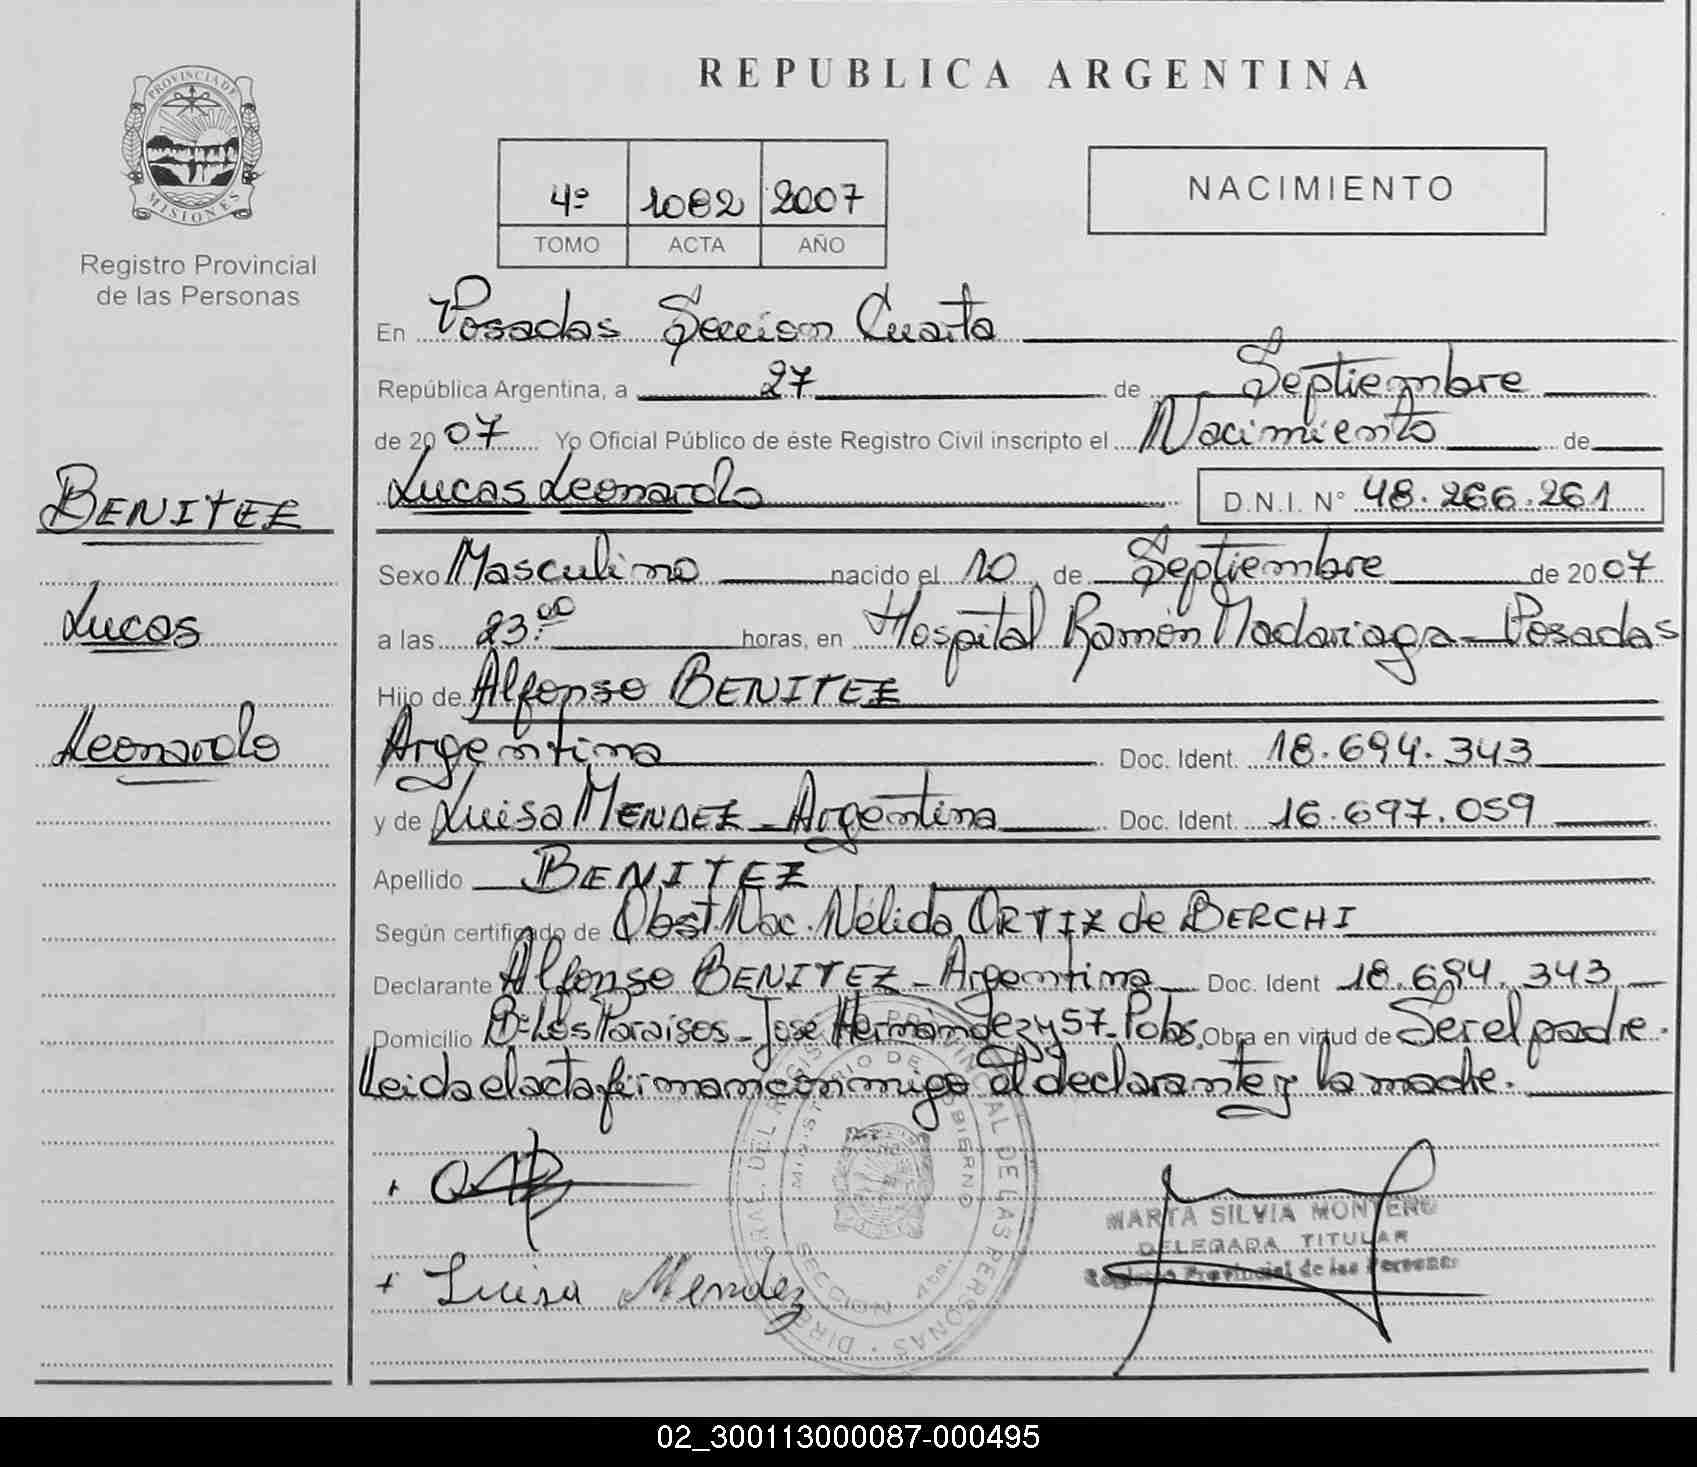 PROVINCIA DE
MISIONES
Registro Provincial
de las Personas
BENITEZ
Lucas
Leonardo
REPUBLICA ARGENTINA
4º 1082 2007
TOMO ACTA AÑO
NACIMIENTO
En Posadas Seccion Cuarta
República Argentina, a 27 de Septiembre
de 2007 Yo Oficial Público de éste Registro Civil inscripto el Nacimiento de
Lucas Leonardo D.N.I. Nº 48.266.261
Sexo Masculino nacido el 10 de Septiembre de 2007
a las 23:00 horas, en Hospital Ramón Madariaga - Posadas
Hijo de Alfonso BENITEZ
Argentina Doc. Ident. 18.694.343
y de Luisa MENDEZ - Argentina Doc. Ident. 16.697.059
Apellido BENITEZ
Según certificado de Obst. Nac. Nélida ORTIZ de BERCHI
Declarante Alfonso BENITEZ - Argentina Doc. Ident 18.694.343
Domicilio Bº Los Paraisos - José Hernández y 57 - Pdas. Obra en virtud de Ser el padre.
Leida el acta firman conmigo el declarante y la madre.
+ Luisa Mendez
MARTA SILVIA MONTERO
DELEGADA TITULAR
Registro Provincial de las Personas
DIREC. GRAL. DEL REGISTRO PROVINCIAL DE LAS PERSONAS
MINISTERIO DE GOBIERNO
SECCION 4ta.
02_300113000087-000495